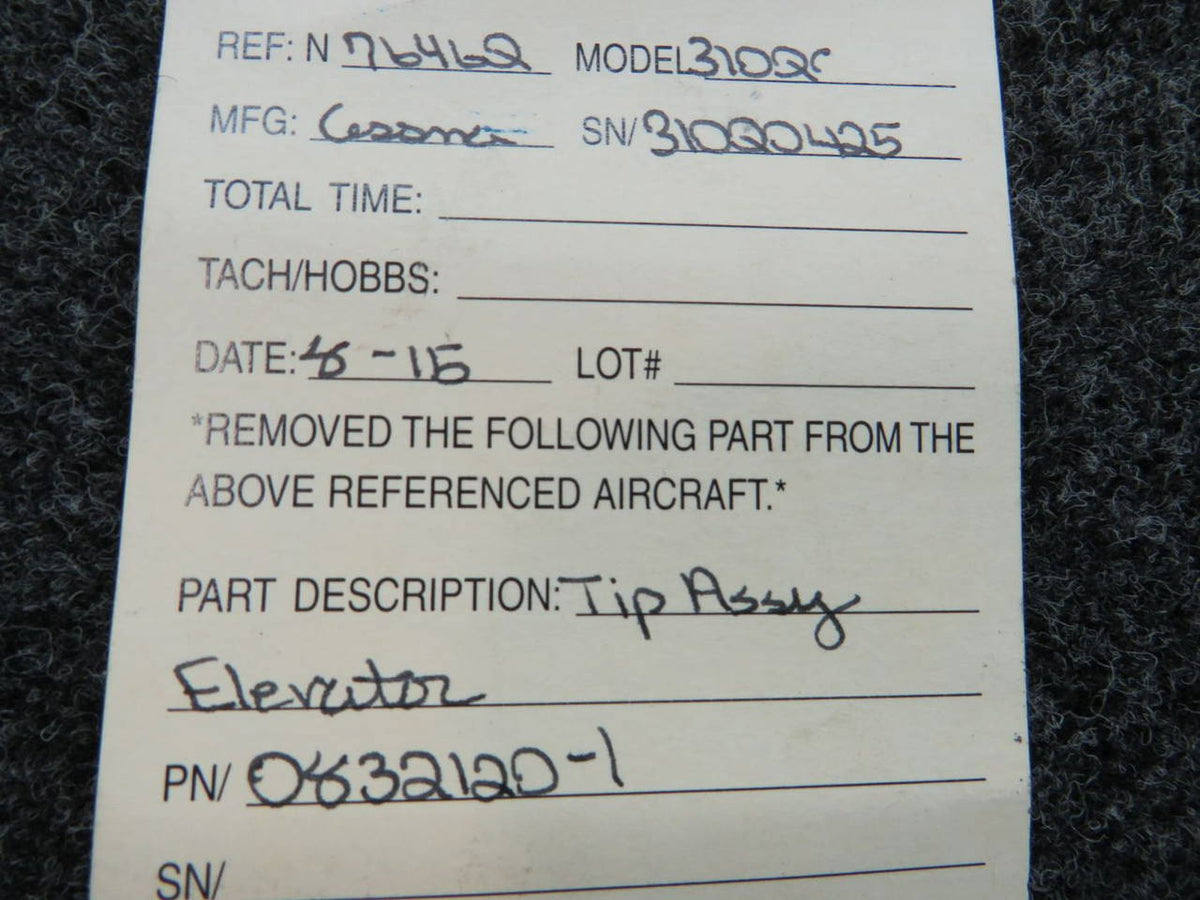 REF: N 7646Q MODEL 310Q
MFG: Cessna SN/ 310Q0425
TOTAL TIME:
TACH/HOBBS:
DATE: 8-15 LOT#
*REMOVED THE FOLLOWING PART FROM THE
ABOVE REFERENCED AIRCRAFT.*
PART DESCRIPTION: Tip Assy
Elevator
PN/ 0832120-1
SN/